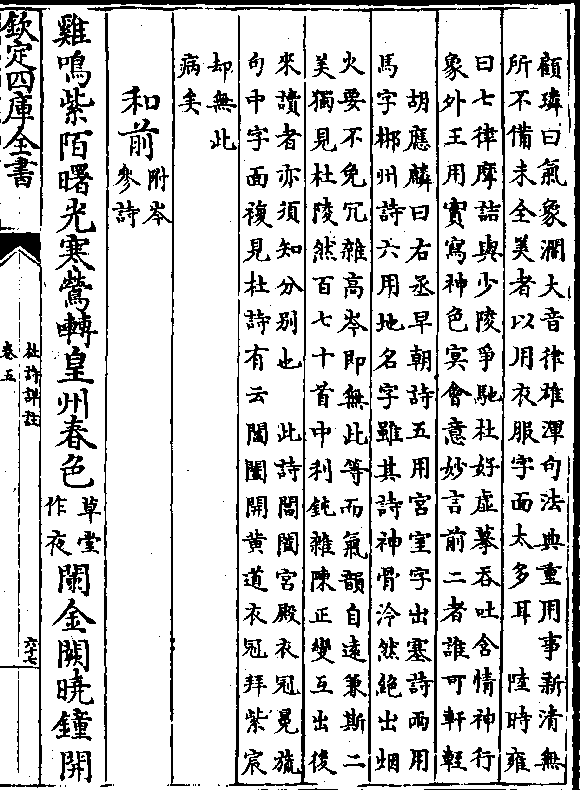 顧璘曰氣象濶大音律雄渾句法典重用事新清無
所不備未全美者以用衣服字面太多耳　陸時雍
曰七律摩詰與少陵爭馳杜好虛摹吞吐含情神行
象外王用實寫神色冥會意妙言前二者誰可軒輊
胡應麟曰右丞早朝詩五用宮室字出塞詩兩用
馬字郴州詩六用地名字雖其詩神骨泠然絶出烟
火要不免冗雜高岑即無此等而氣韻自遠兼斯二
美獨見杜陵然百七十首中利鈍雜陳正變互出後
來讀者亦須知分別也　此詩閶闔宮殿衣冠冕旒
句中字面複見杜詩有云閶闔開黄道衣冠拜紫宸
却無此
病矣
和前附岑參詩
雞鳴紫陌曙光寒鶯囀皇州春色草堂作夜闌金闕曉鐘開
欽定四庫全書
杜詩詳註
卷五
六十七